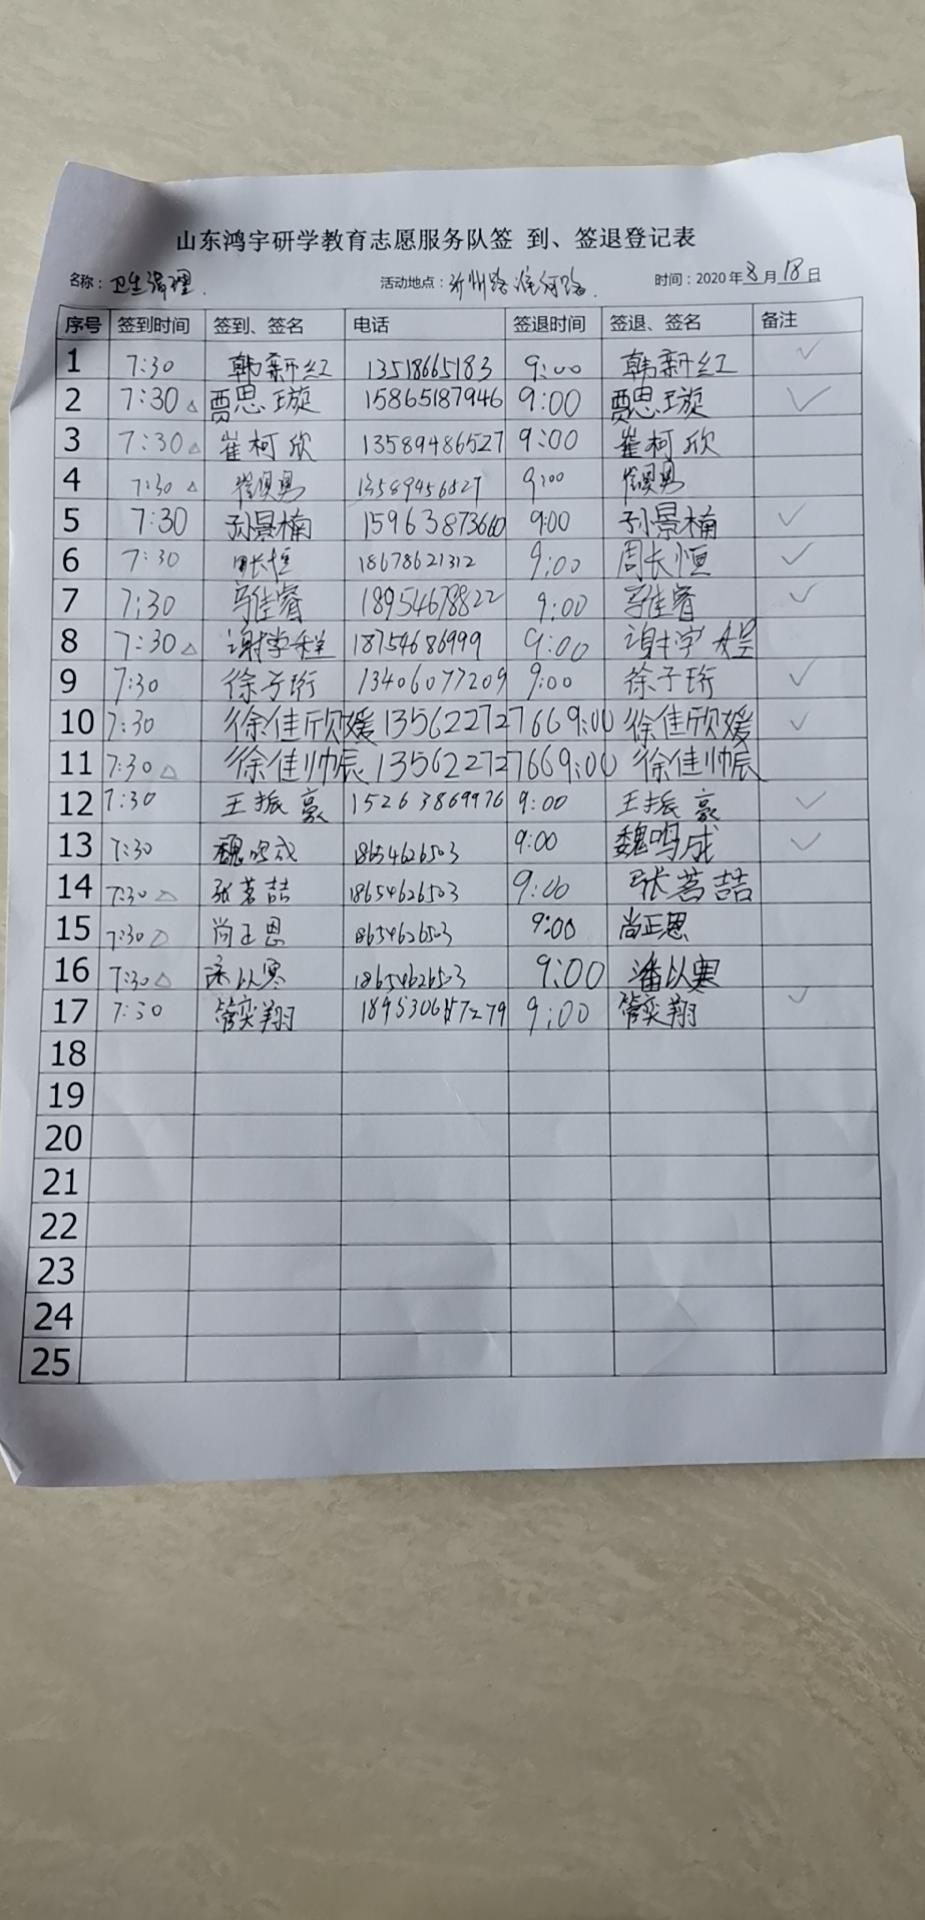 山东鸿宇研学教育志愿服务队签 到、签退登记表
名称：卫生清理. 活动地点：沂州路淮河路. 时间：2020年8月18日
序号 签到时间 签到、签名 电话 签退时间 签退、签名 备注
1 7:30 韩新红 13518665183 9:00 韩新红 ✓
2 7:30△ 贾思璇 15865187946 9:00 贾思璇 ✓
3 7:30△ 崔柯欣 13589486527 9:00 崔柯欣
4 7:30△ 9:00
5 7:30 孙景楠 15963873660 9:00 孙景楠 ✓
6 7:30 周长恒 18678621312 9:00 周长恒 ✓
7 7:30 马佳睿 18954678822 9:00 马佳睿 ✓
8 7:30△ 18754686999 9:00
9 7:30 徐子珩 13406077209 9:00 徐子珩 ✓
10 7:30 徐佳欣媛 13562272766 9:00 徐佳欣媛 ✓
11 7:30△ 徐佳帅辰 13562272766 9:00 徐佳帅辰
12 7:30 王振豪 15263869976 9:00 王振豪 ✓
13 7:30 魏鸣成 18654626503 9:00 魏鸣成 ✓
14 7:30△ 张茗喆 18654626503 9:00 张茗喆
15 7:30△ 尚正恩 18654626503 9:00 尚正恩
16 7:30△ 潘以寒 18654626503 9:00 潘以寒
17 7:30 管奕翔 9:00 管奕翔 ✓
18
19
20
21
22
23
24
25